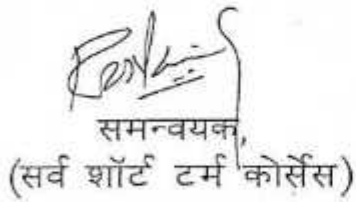 समन्वयक,
(सर्व शॉर्ट टर्म कोर्सेस)